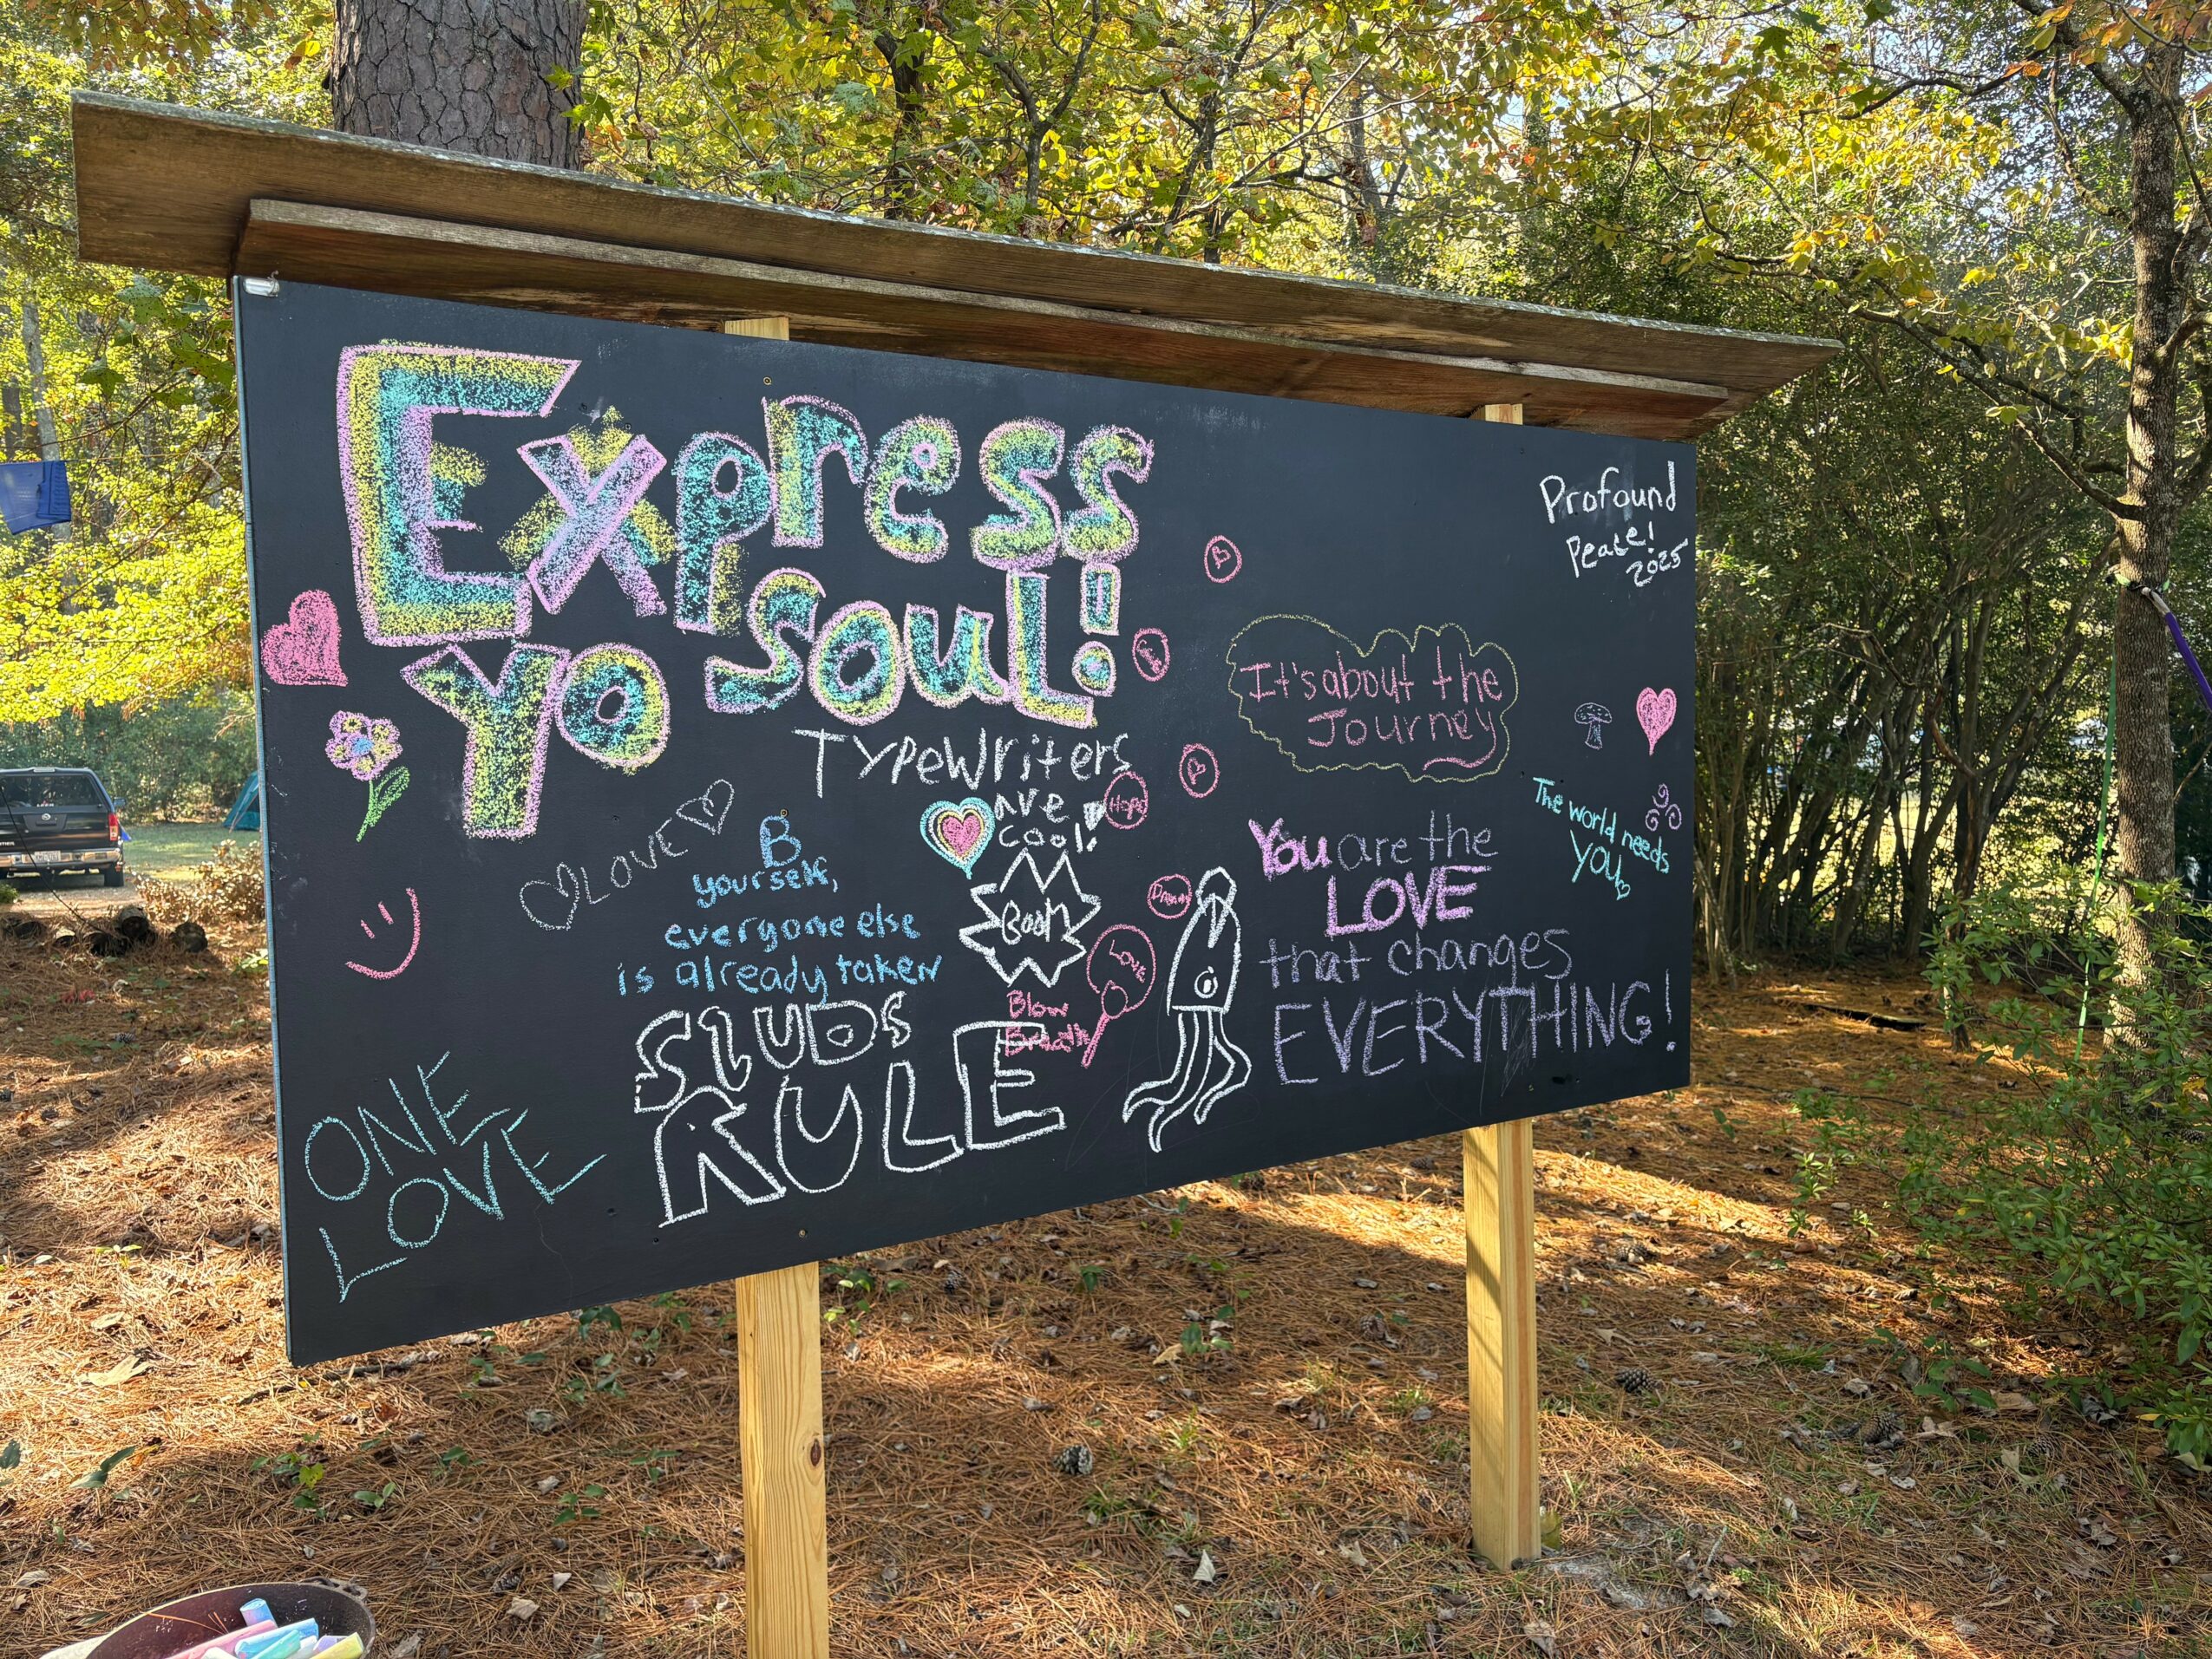 Express
Yo Soul!
Profound
Peace!
2025
It's about the
Journey
TYPEWriters
are
cool!
Hope
LOVE
B
yourself,
everyone else
is already taken
Boom
Love
Blow
Breath
The world needs
YOU
You are the
LOVE
that changes
EVERYTHING!
RULE
ONE
LOVE